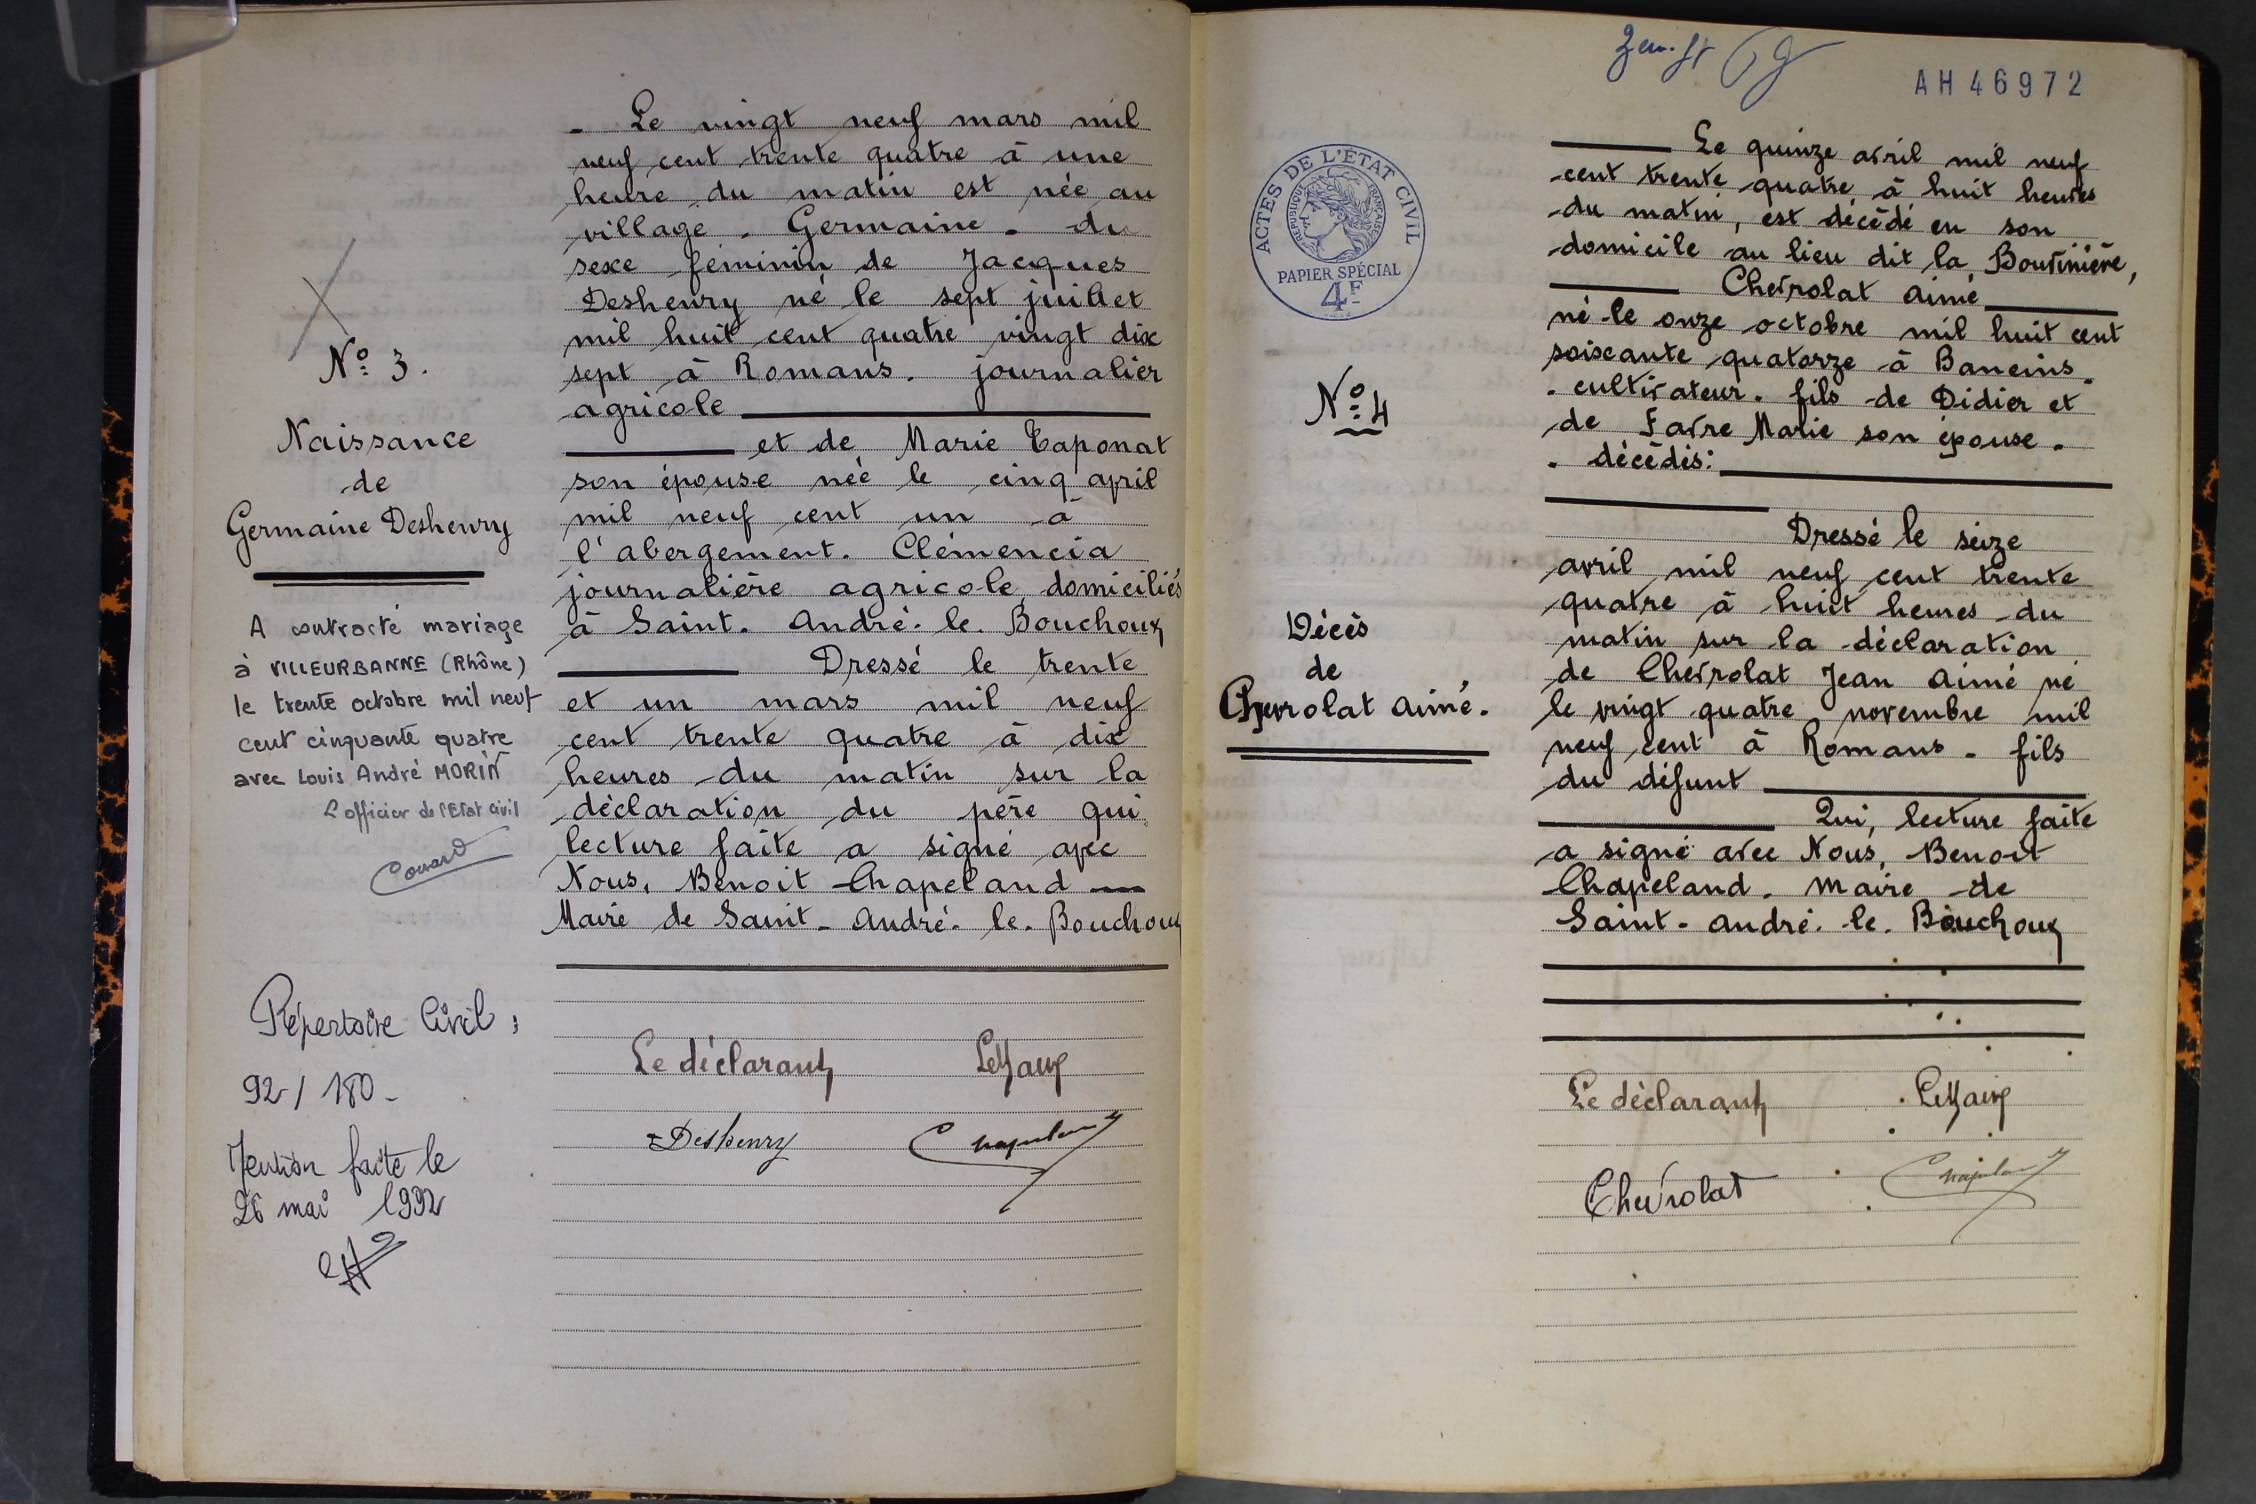 N° 3.
Naissance
de
Germaine Deshenry
A contracté mariage
à VILLEURBANNE (Rhône)
le trente octobre mil neuf
cent cinquante quatre
avec Louis André MORIN
L'officier de l'Etat Civil
Répertoire Civil :
92 / 180 -
Mention faite le
26 mai 1992
- Le vingt neuf mars mil
neuf cent trente quatre à une
heure du matin est née au
village. Germaine. du
sexe féminin de Jacques
Deshenry né le sept juillet
mil huit cent quatre vingt dix
sept à Romans. journalier
agricole
et de Marie Taponat
son épouse née le cinq avril
mil neuf cent un à
l'abergement. Clémencia
journalière agricole, domiciliés
à Saint. André. le. Bouchoux
Dressé le trente
et un mars mil neuf
cent trente quatre à dix
heures du matin sur la
déclaration du père qui
lecture faite a signé avec
Nous, Benoit Chapeland
Maire de Saint - André - le - Bouchoux
Le déclarant Le Maire
Deshenry Chapeland
AH 46972
ACTES DE L'ÉTAT CIVIL
RÉPUBLIQUE FRANÇAISE
PAPIER SPÉCIAL
4F
N° 4
Décès
de
Chevrolat Aimé.
Le quinze avril mil neuf
cent trente quatre, à huit heures
du matin, est décédé en son
domicile au lieu dit la Bouvinière,
Chevrolat Aimé
né le onze octobre mil huit cent
soixante quatorze à Baneins.
. cultivateur. fils de Didier et
de Favre Marie son épouse.
. décédés:
Dressé le seize
avril mil neuf cent trente
quatre à huit heures du
matin sur la déclaration
de Chevrolat Jean Aimé né
le vingt quatre novembre mil
neuf cent à Romans - fils
du défunt
Qui, lecture faite
a signé avec Nous, Benoit
Chapeland. Maire de
Saint - André. le. Bouchoux
Le déclarant Le Maire
Chevrolat Chapeland